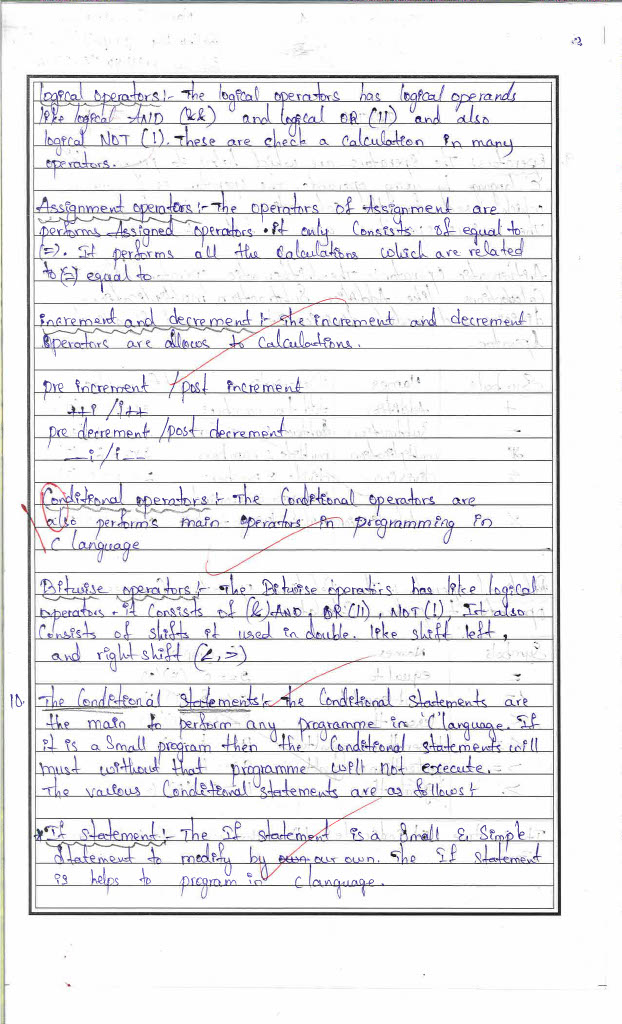 3
Logical operators :- The logical operators has logical operands
like logical AND (&&) and logical OR (||) and also
logical NOT (!). These are check a calculation in many
operators.
Assignment operators :- The operators of Assignment are
performs Assigned operators. it only Consists of equal to
(=). It performs all the Calculations which are related
to (=) equal to
increment and decrement :- The increment and decrement
operators are allows to Calculations.
pre increment / post increment
++i / i++
pre decrement / post decrement
--i / i--
Conditional operators :- The Conditional operators are
also performs main operators in programming in
C language
Bitwise operators :- The Bitwise operators has like logical
operators. it Consists of (&) AND, OR (||), NOT (!), It also
Consists of shifts it used in double. like shift left,
and right shift (<, >)
10. The Conditional Statements :- the Conditional Statements are
the main to perform any programme in C language. If
it is a Small program then the Conditional statements will
must without that programme will not execute.
The various Conditional Statements are as follows :
* If statement :- The If statement is a Small & Simple
Statement to modify by our own. The If statement
is helps to program in C language.